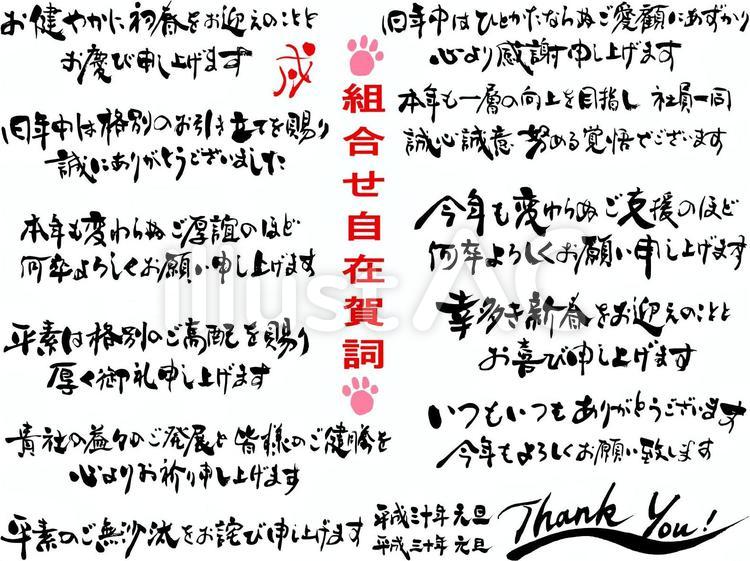 お健やかに初春をお迎えのことと
お慶び申し上げます
戌
旧年中は格別のお引き立てを賜り
誠にありがとうございました
本年も変わらぬご厚誼のほど
何卒よろしくお願い申し上げます
平素は格別のご高配を賜り
厚く御礼申し上げます
貴社の益々のご発展と皆様のご健勝を
心よりお祈り申し上げます
平素のご無沙汰をお詫び申し上げます
組合せ自在賀詞
旧年中はひとかたならぬご愛顧にあずかり
心より感謝申し上げます
本年も一層の向上を目指し 社員一同
誠心誠意 努める覚悟でございます
今年も変わらぬご支援のほど
何卒よろしくお願い申し上げます
幸多き新春をお迎えのことと
お喜び申し上げます
いつもいつもありがとうございます
今年もよろしくお願い致します
平成三十年 元旦
平成三十年 元旦
Thank You!
illust AC